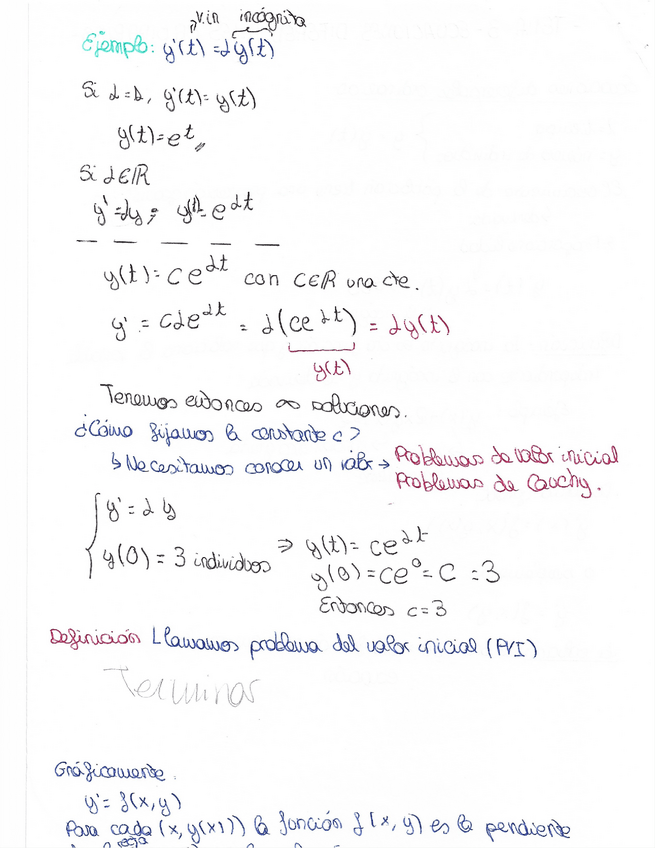 v.in incógnita
Ejemplo: y'(t) = λy(t)
Si λ=1, y'(t)= y(t)
y(t)=e^t
Si λ∈ℝ
y'=λy ; y(t)= e^λt
y(t)= ce^λt con c∈ℝ una cte.
y' = cλe^λt = λ(ce^λt) = λy(t)
y(t)
Tenemos entonces ∞ soluciones.
¿Cómo fijamos la constante c?
↳ Necesitamos conocer un valor → Problemas de valor inicial
Problemas de Cauchy.
y' = λ y
y(0) = 3 individuos ⇒ y(t)= ce^λt
y(0)=ce^0= C = 3
Entonces c=3
Definición Llamamos problema del valor inicial (PVI)
Terminar
Gráficamente.
y'= f(x,y)
Para cada (x, y(x)) la función f(x,y) es la pendiente